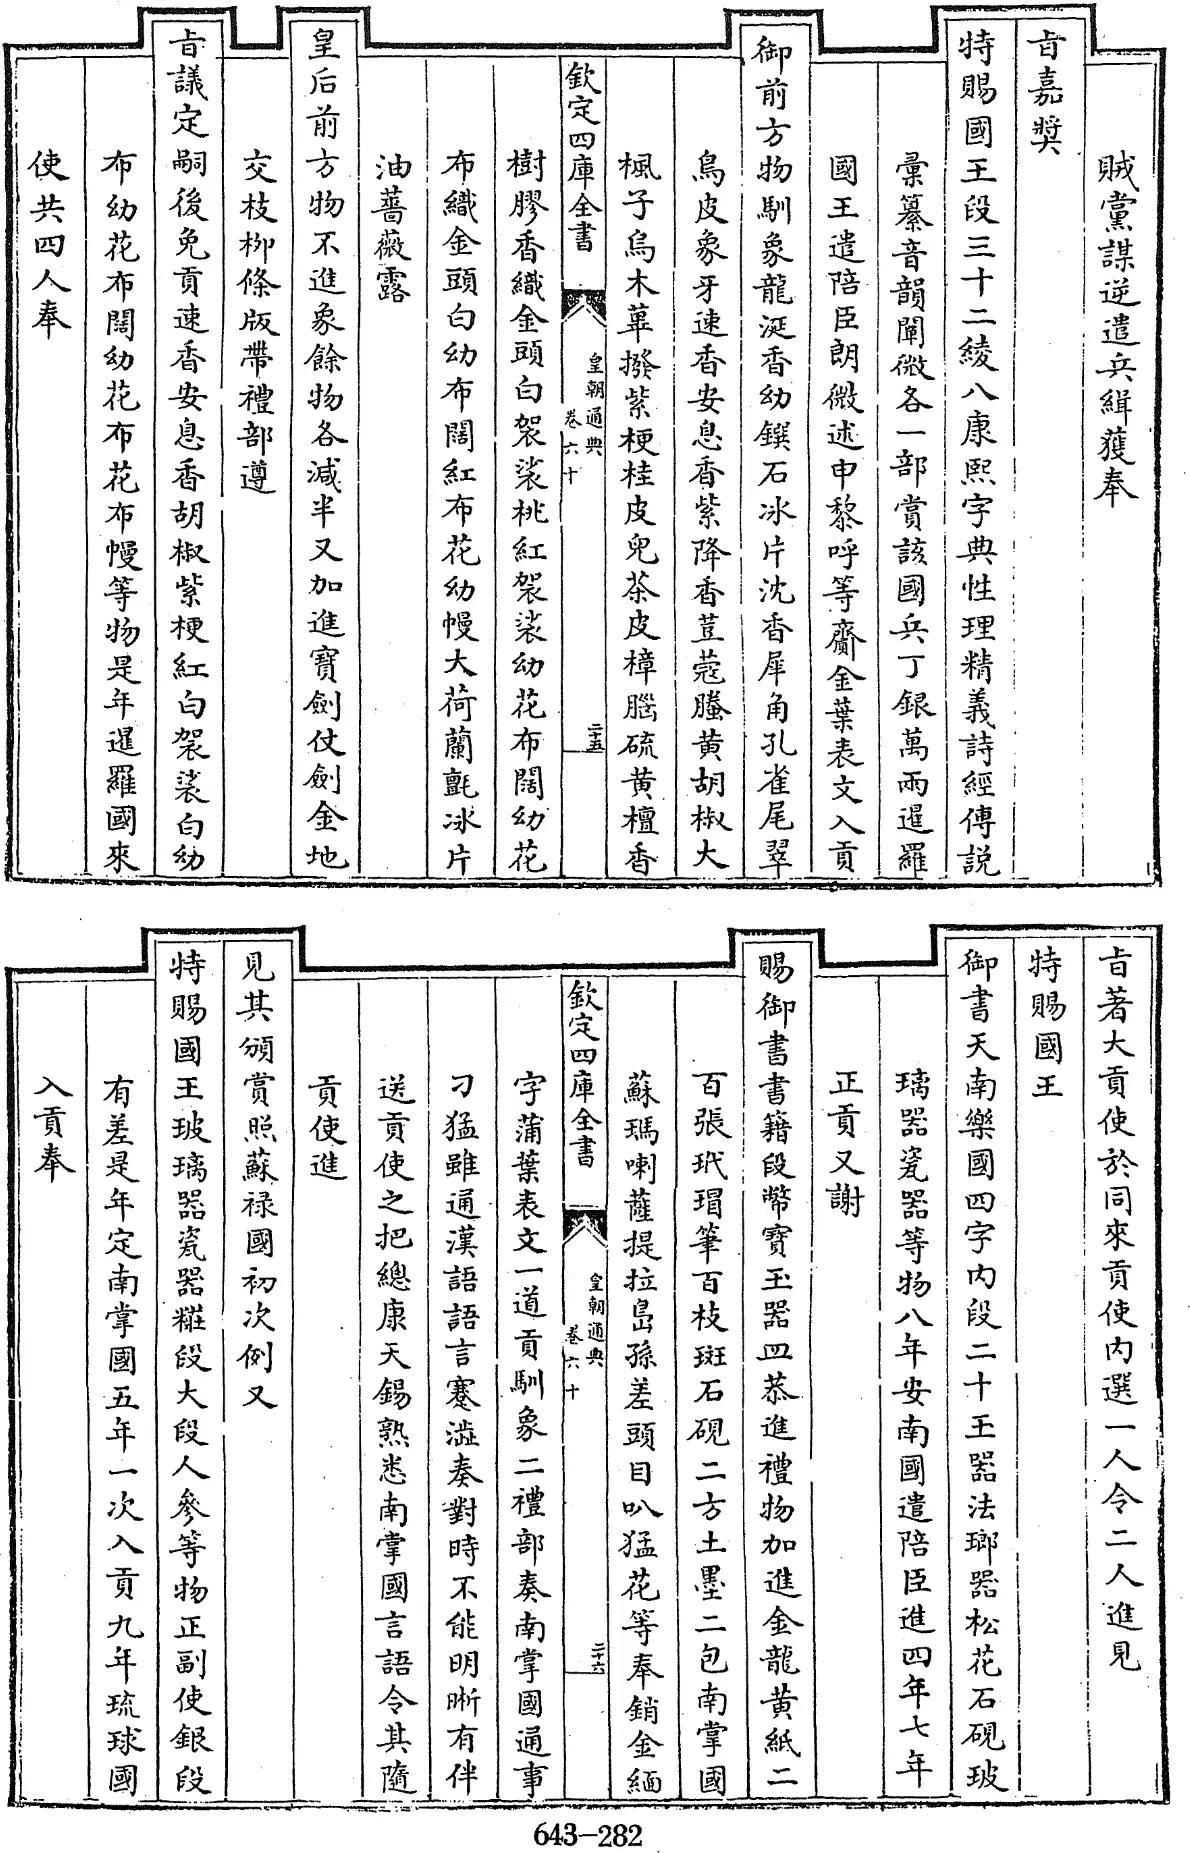 賊黨謀逆遣兵緝獲奉
旨嘉獎
特賜國王段三十二綾八康熙字典性理精義詩經傳説
彙纂音韻闡微各一部賞該國兵丁銀萬兩暹羅
國王遣陪臣朗微述申黎呼等齎金葉表文入貢
御前方物馴象龍涎香幼鐷石冰片沈香犀角孔雀尾翠
鳥皮象牙速香安息香紫降香荳蔻騰黄胡椒大
楓子烏木蓽撥紫梗桂皮兒茶皮樟腦硫黄檀香
欽定四庫全書
皇朝通典
卷六十
二十五
樹膠香織金頭白袈裟桃紅袈裟幼花布闊幼花
布織金頭白幼布闊紅布花幼幔大荷蘭氈冰片
油薔薇露
皇后前方物不進象餘物各減半又加進寶劍仗劍金地
交枝柳條版帶禮部遵
旨議定嗣後免貢速香安息香胡椒紫梗紅白袈裟白幼
布幼花布闊幼花布花布幔等物是年暹羅國來
使共四人奉
旨著大貢使於同來貢使内選一人令二人進見
特賜國王
御書天南樂國四字内段二十玉器法瑯器松花石硯玻
璃器瓷器等物八年安南國遣陪臣進四年七年
正貢又謝
賜御書書籍段幣寶玉器皿恭進禮物加進金龍黄紙二
百張玳瑁筆百枝斑石硯二方土墨二包南掌國
蘇瑪喇薩提拉島孫差頭目叭猛花等奉銷金緬
欽定四庫全書
皇朝通典
卷六十
二十六
字蒲葉表文一道貢馴象二禮部奏南掌國通事
刁猛雖通漢語語言蹇澁奏對時不能明晰有伴
送貢使之把總康天錫熟悉南掌國言語令其隨
貢使進
見其頒賞照蘇禄國初次例又
特賜國王玻璃器瓷器糚段大段人參等物正副使銀段
有差是年定南掌國五年一次入貢九年琉球國
入貢奉
643-282